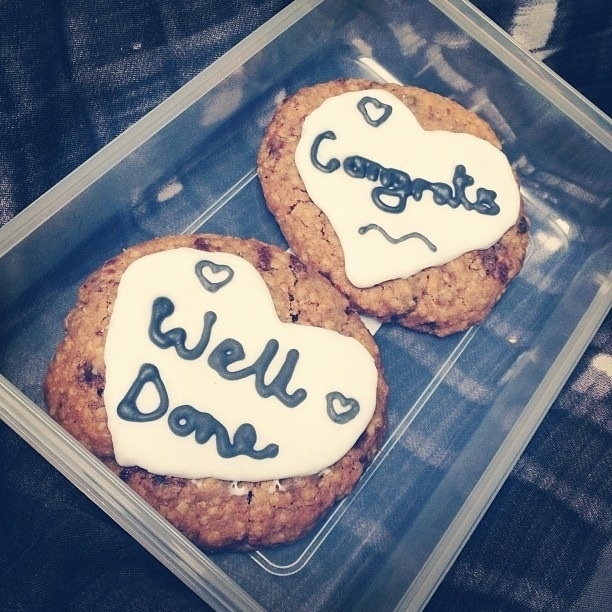 Congrats
Well
Done